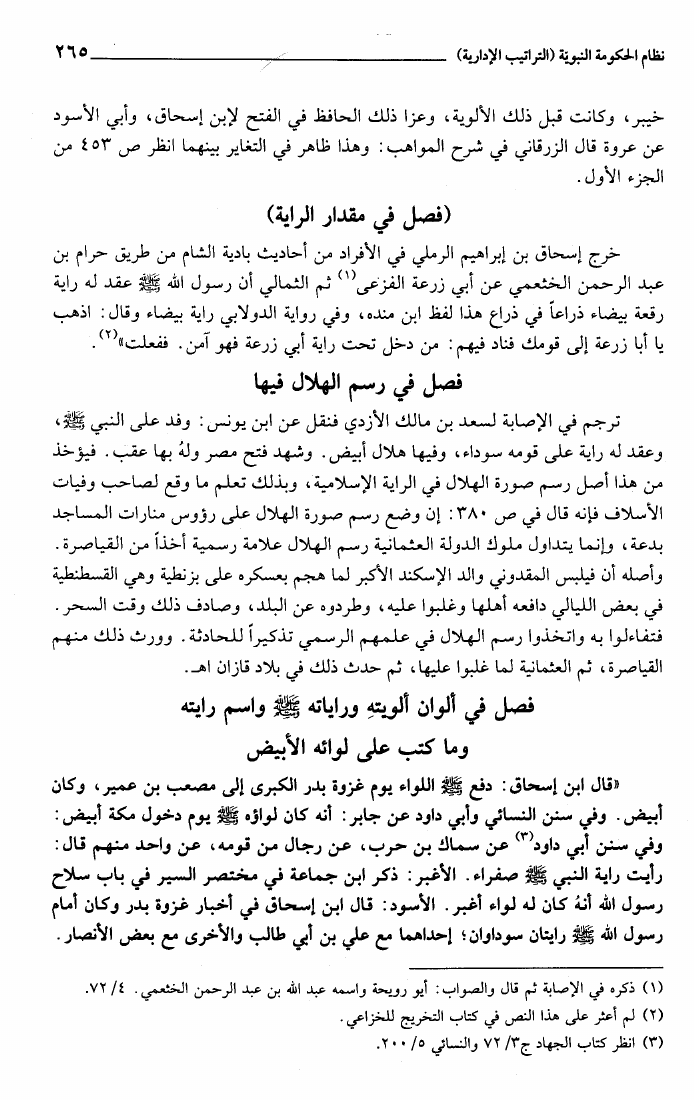 نظام الحكومة النبوية (التراتيب الإدارية) ٢٦٥
خيبر، وكانت قبل ذلك الألوية، وعزا ذلك الحافظ في الفتح لإبن إسحاق، وأبي الأسود
عن عروة قال الزرقاني في شرح المواهب: وهذا ظاهر في التغاير بينهما انظر ص ٤٥٣ من
الجزء الأول.
(فصل في مقدار الراية)
خرج إسحاق بن إبراهيم الرملي في الأفراد من أحاديث بادية الشام من طريق حرام بن
عبد الرحمن الخثعمي عن أبي زرعة الفزعى(١) ثم الثمالي أن رسول الله ﷺ عقد له راية
رقعة بيضاء ذراعاً في ذراع هذا لفظ ابن منده، وفي رواية الدولابي راية بيضاء وقال: اذهب
يا أبا زرعة إلى قومك فناد فيهم: من دخل تحت راية أبي زرعة فهو آمن. ففعلت»(٢).
فصل في رسم الهلال فيها
ترجم في الإصابة لسعد بن مالك الأزدي فنقل عن ابن يونس: وفد على النبي ﷺ،
وعقد له راية على قومه سوداء، وفيها هلال أبيض. وشهد فتح مصر ولهُ بها عقب. فيؤخذ
من هذا أصل رسم صورة الهلال في الراية الإسلامية، وبذلك تعلم ما وقع لصاحب وفيات
الأسلاف فإنه قال في ص ٣٨٠: إن وضع رسم صورة الهلال على رؤوس منارات المساجد
بدعة، وإنما يتداول ملوك الدولة العثمانية رسم الهلال علامة رسمية أخذاً من القياصرة.
وأصله أن فيلبس المقدوني والد الإسكند الأكبر لما هجم بعسكره على بزنطية وهي القسطنطية
في بعض الليالي دافعه أهلها وغلبوا عليه، وطردوه عن البلد، وصادف ذلك وقت السحر.
فتفاءلوا به واتخذوا رسم الهلال في علمهم الرسمي تذكيراً للحادثة. وورث ذلك منهم
القياصرة، ثم العثمانية لما غلبوا عليها، ثم حدث ذلك في بلاد قازان اهـ.
فصل في ألوان ألويتهِ وراياته ﷺ واسم رايته
وما كتب على لوائه الأبيض
«قال ابن إسحاق: دفع ﷺ اللواء يوم غزوة بدر الكبرى إلى مصعب بن عمير، وكان
أبيض. وفي سنن النسائي وأبي داود عن جابر: أنه كان لواؤه ﷺ يوم دخول مكة أبيض:
وفي سنن أبي داود(٣) عن سماك بن حرب، عن رجال من قومه، عن واحد منهم قال:
رأيت راية النبي ﷺ صفراء. الأغبر: ذكر ابن جماعة في مختصر السير في باب سلاح
رسول الله أنهُ كان له لواء أغبر. الأسود: قال ابن إسحاق في أخبار غزوة بدر وكان أمام
رسول الله ﷺ رايتان سوداوان؛ إحداهما مع علي بن أبي طالب والأخرى مع بعض الأنصار.
(١) ذكره في الإصابة ثم قال والصواب: أيو رويحة واسمه عبد الله بن عبد الرحمن الخثعمي. ٧٢/٤.
(٢) لم أعثر على هذا النص في كتاب التخريج للخزاعي.
(٣) انظر كتاب الجهاد ج٣/ ٧٢ والنسائي ٥/ ٢٠٠.